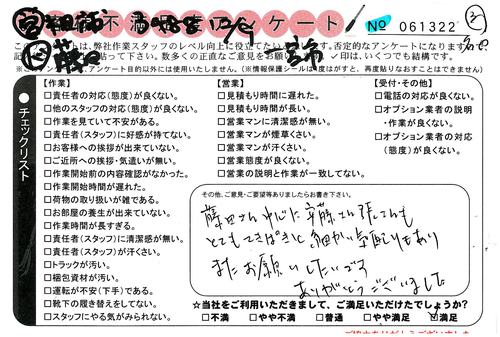 不満 アンケート
No 061322
このアンケートは、弊社作業スタッフのレベル向上に役立てたい
否定的なアンケートになります
貼って下さい。数多くの正直なご意見をお願
✓印は、いくつでも結構です。
アンケート目的以外には使用いたしません。(※情報保護シールは1度はがすと、再度貼りなおすことはできません)
チェックリスト
【作業】
□責任者の対応(態度)が良くない。
□他のスタッフの対応(態度)が良くない。
□作業を見ていて不安がある。
□責任者(スタッフ)に好感が持てない。
□お客様への挨拶が出来ていない。
□ご近所への挨拶・気遣いが無い。
□作業開始前の内容確認がなかった。
□作業開始時間が遅れた。
□荷物の取り扱いが雑である。
□お部屋の養生が出来ていない。
□作業時間が長すぎる。
□責任者(スタッフ)に清潔感が無い。
□責任者(スタッフ)が汗くさい。
□トラックが汚い。
□梱包資材が汚い。
□運転が不安(下手)である。
□靴下の履き替えをしてない。
□スタッフにやる気がみられない。
【営業】
□見積もり時間に遅れた。
□見積もり時間が長い。
□営業マンに清潔感が無い。
□営業マンが煙草くさい。
□営業マンが汗くさい。
□営業態度が良くない。
□営業の説明と作業が一致してない。
【受付・その他】
□電話の対応が良くない。
□オプション業者の説明
・作業が良くない。
□オプション業者の対応
(態度)が良くない。
その他、ご意見・ご要望等ありましたらお書き下さい。
藤田さん中心に斉藤さん
とてもてきぱきと細かい気配りもあり
またお願いしたいです
ありがとうございました
☆当社をご利用いただきまして、ご満足いただけたでしょうか?
□不満 □やや不満 □普通 □やや満足 ☑満足